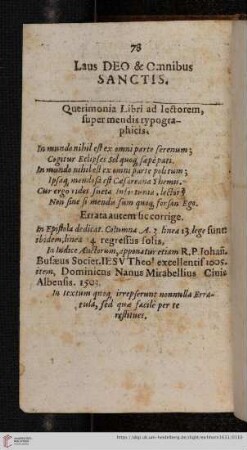 78
Laus DEO & Omnibus
SANCTIS.
Querimonia Libri ad lectorem,
super mendis typogra-
phicis.
In mundo nihil est ex omni parte serenum;
Cogitur Eclipses Sol quoq; sæpè pati.
In mundo nihil est ex omni parte politum;
Ipsaq; mendosa est Cæsareana Themis.
Cur ergo rides lector?
Non sine si mendis sum quoq; forsan Ego.
Errata autem sic corrige.
In Epistola dedicat. Columna A. 3 linea 13. lege sunt
ibidem, linea 4 regressus solis,
In Indice Auctorum, apponatur etiam R. P. Johan.
Busæus Societ. IESV Theol. excellentiss
item, Dominicus Nanus Mirabellius Civis
Albensis. 1503.
In textum quoq; irrepserunt nonnulla Erra-
tula, sed quæ facile per te
restitues.
http://digi.ub.uni-heidelberg.de/diglit/